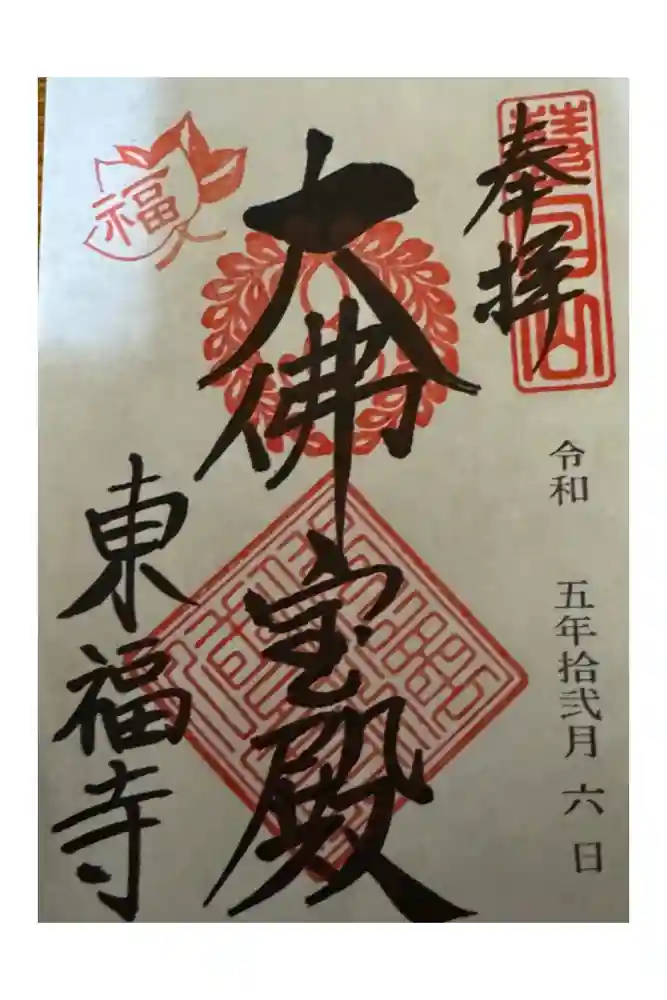 奉拝
慧日山
令和 五年拾弐月 六 日
大佛宝殿
福
東福寺